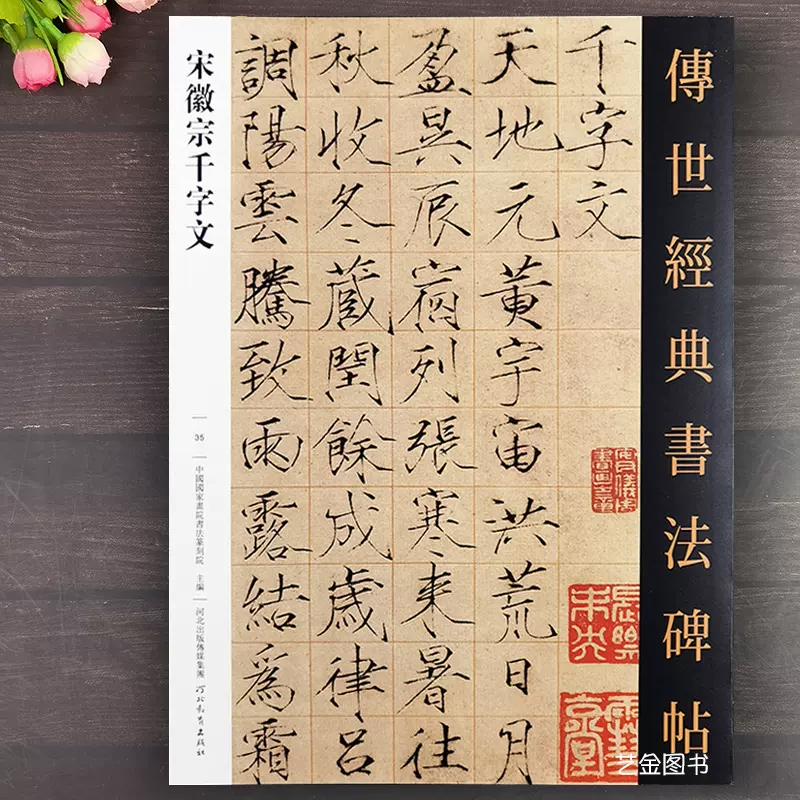 傳世經典書法碑帖
千字文
天地元黄宇宙洪荒日月
盈昃辰宿列張寒来暑往
秋收冬蔵閏餘成歳律呂
調陽雲騰致雨露結為霜
宋徽宗千字文
35
中國國家畫院書法篆刻院 主編
河北出版傳媒集團
河北教育出版社
艺金图书